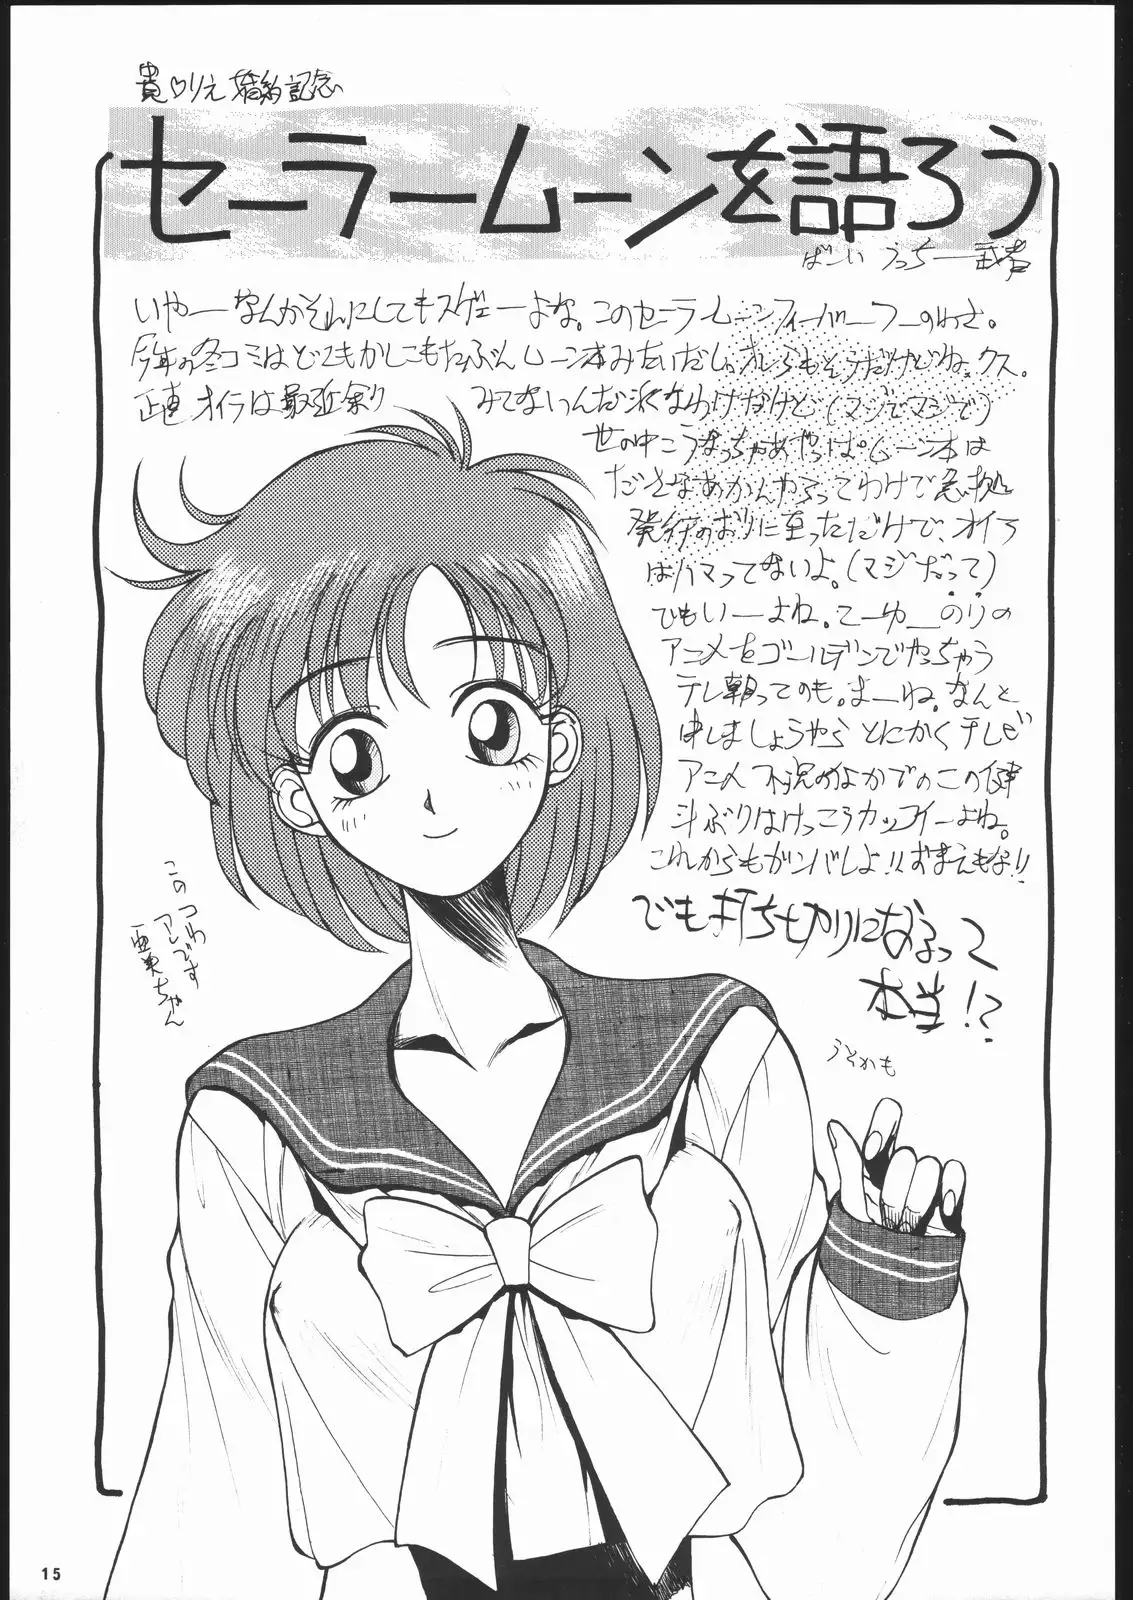 貴♡りえ 婚約記念
セーラームーンを語ろう
ばーい うっちー武者
いやーなんかそんにしてもスゲェーよね。このセーラームーンフィーバーフーのわさ。
今年の冬コミはどこもかしこもたぶんムーン本みたいだし。オレらもそうだけどね。クス。
正直 オイラは最近余り みてないんだ派なわけだけど(マジでマジで)
世の中こうなっちゃあやっぱムーン本は
ださなあかんやろってわけで急拠
発行のおりに至っただけで、オイラ
はハマってないよ。(マジだって)
でもいーよね。こーゆーのりの
アニメをゴールデンでやっちゃう
テレ朝ってのも。まーね。なんと
申しましょうやら とにかくテレビ
アニメ不況のなかでのこの健
斗ぶりはけっこうカッコイーよね。
これからもガンバレよ!!おまえもな!!
でも打ち切りになるって
本当!?
うそかも
このつわ
アレです
亜美ちゃん
15